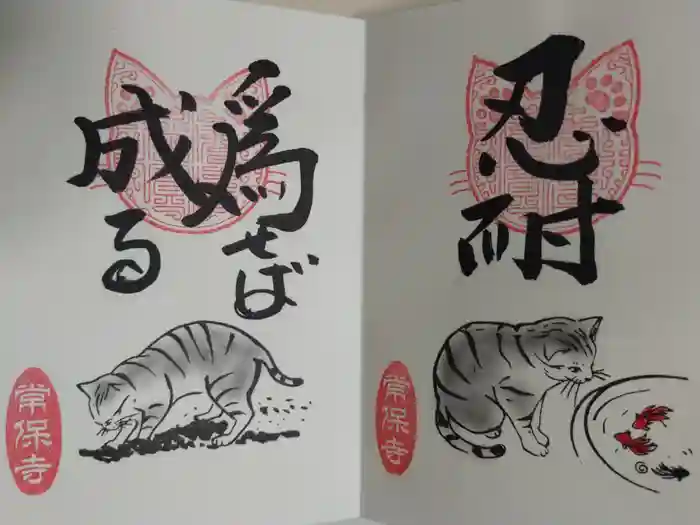 爲せば
成る
常保寺
忍耐
常保寺